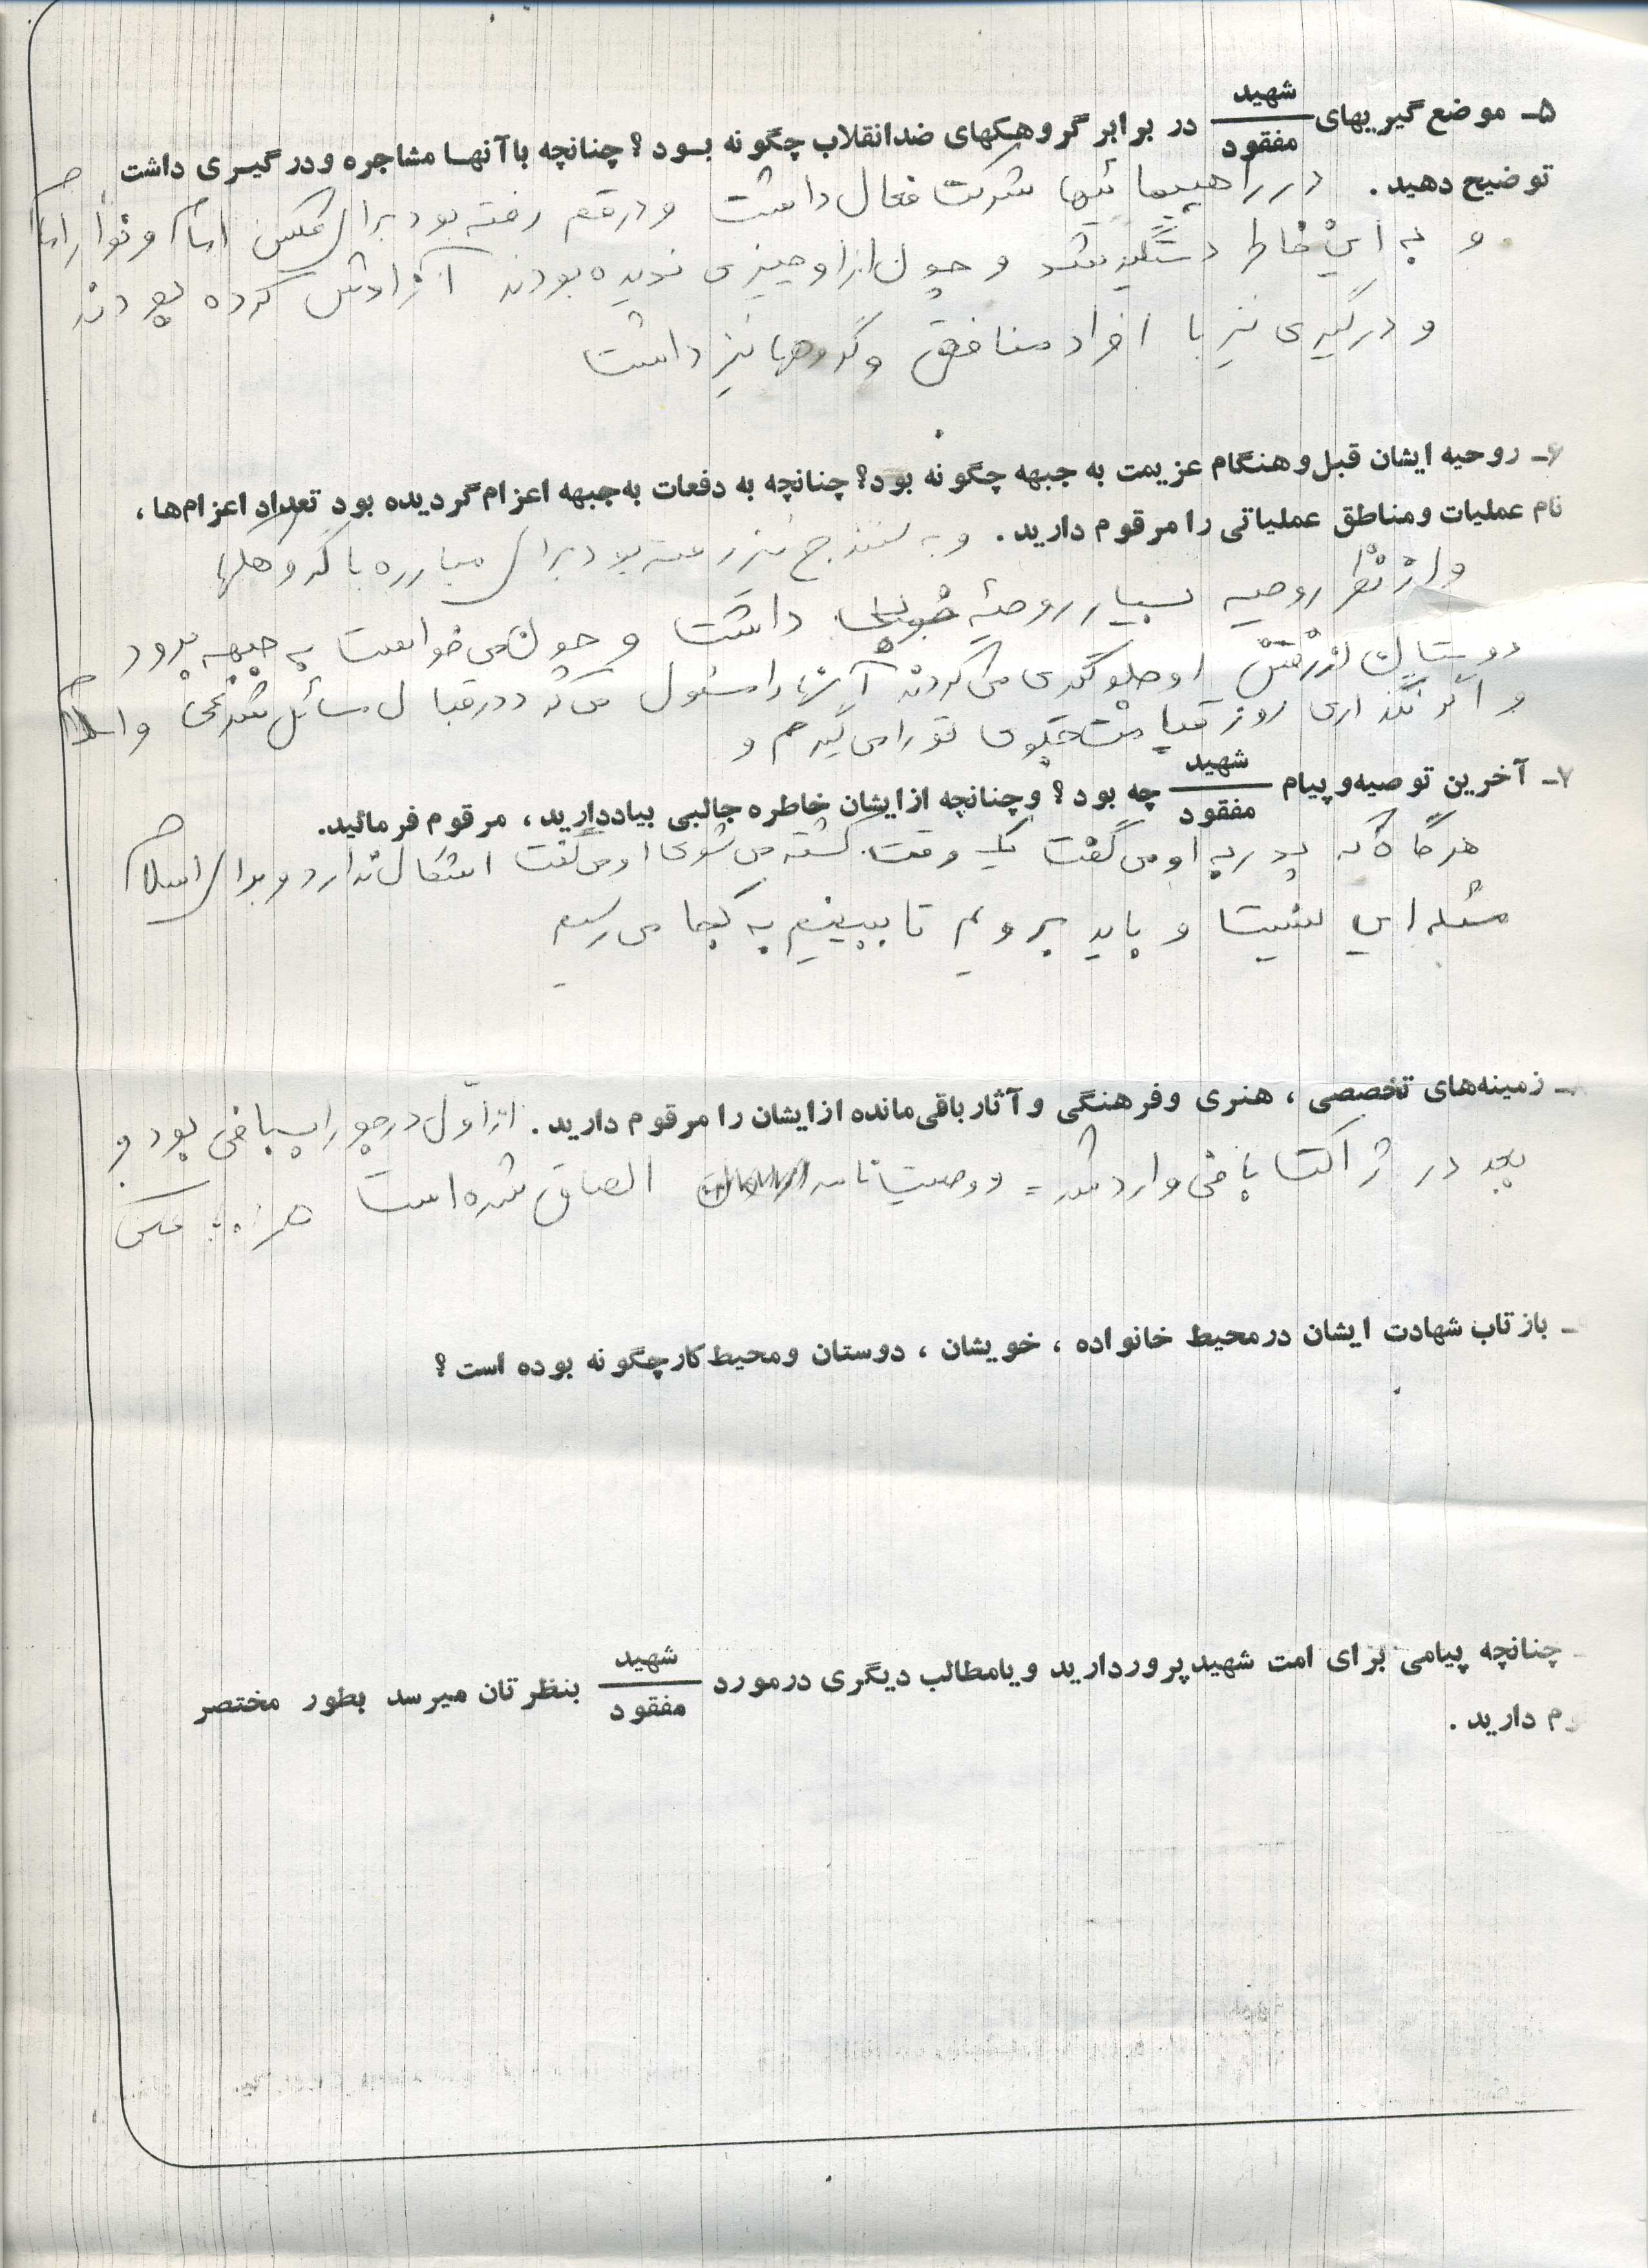 ۵ـ موضع گیریهای شهید / مفقود در برابر گروهکهای ضدانقلاب چگونه بود؟ چنانچه باآنها مشاجره ودرگیری داشت
توضیح دهید. در راهپیمائیها شرکت فعال داشت و در قم رفته بود برای عکس امام و نوار امام
و به این خاطر دستگیر شد و چون از او چیزی ندیده بودند آزادش کرده بودند
و درگیری نیز با افراد منافق و گروهها نیز داشت
۶ـ روحیه ایشان قبل و هنگام عزیمت به جبهه چگونه بود؟ چنانچه به دفعات به جبهه اعزام گردیده بود تعداد اعزام‌ها،
نام عملیات ومناطق عملیاتی را مرقوم دارید. و به سنندج نیز رفته بود برای مبارزه با گروهکها
و از نظر روحیه بسیار روحیهٔ خوبی داشت و چون می خواست به جبهه برود
دوستان از رفتن او جلوگیری می کردند آنها را مسئول می کرد در قبال مسائل شرعی و اسلام
و اگر نگذاری روز قیامت جلوی تو را می گیرم و
۷ـ آخرین توصیه وپیام شهید / مفقود چه بود؟ وچنانچه ازایشان خاطره جالبی بیاددارید، مرقوم فرمائید.
هرگاه که پدر به او می گفت یک وقت کشته می شوی او می گفت اشکال ندارد و برای اسلام
مسئله ای نیست و باید برویم تا ببینیم به کجا می رسیم
ـ زمینه‌های تخصصی، هنری وفرهنگی وآثارباقی‌مانده ازایشان را مرقوم دارید. از اوّل در جوراب بافی بود و
بعد در ژاکت بافی وارد شد = و وصیت نامه الصاق شده است همراه با عکس
ـ بازتاب شهادت ایشان درمحیط خانواده، خویشان، دوستان ومحیط کارچگونه بوده است؟
ـ چنانچه پیامی برای امت شهیدپروردارید ویامطالب دیگری درمورد شهید / مفقود بنظرتان میرسد بطور مختصر
وم دارید.